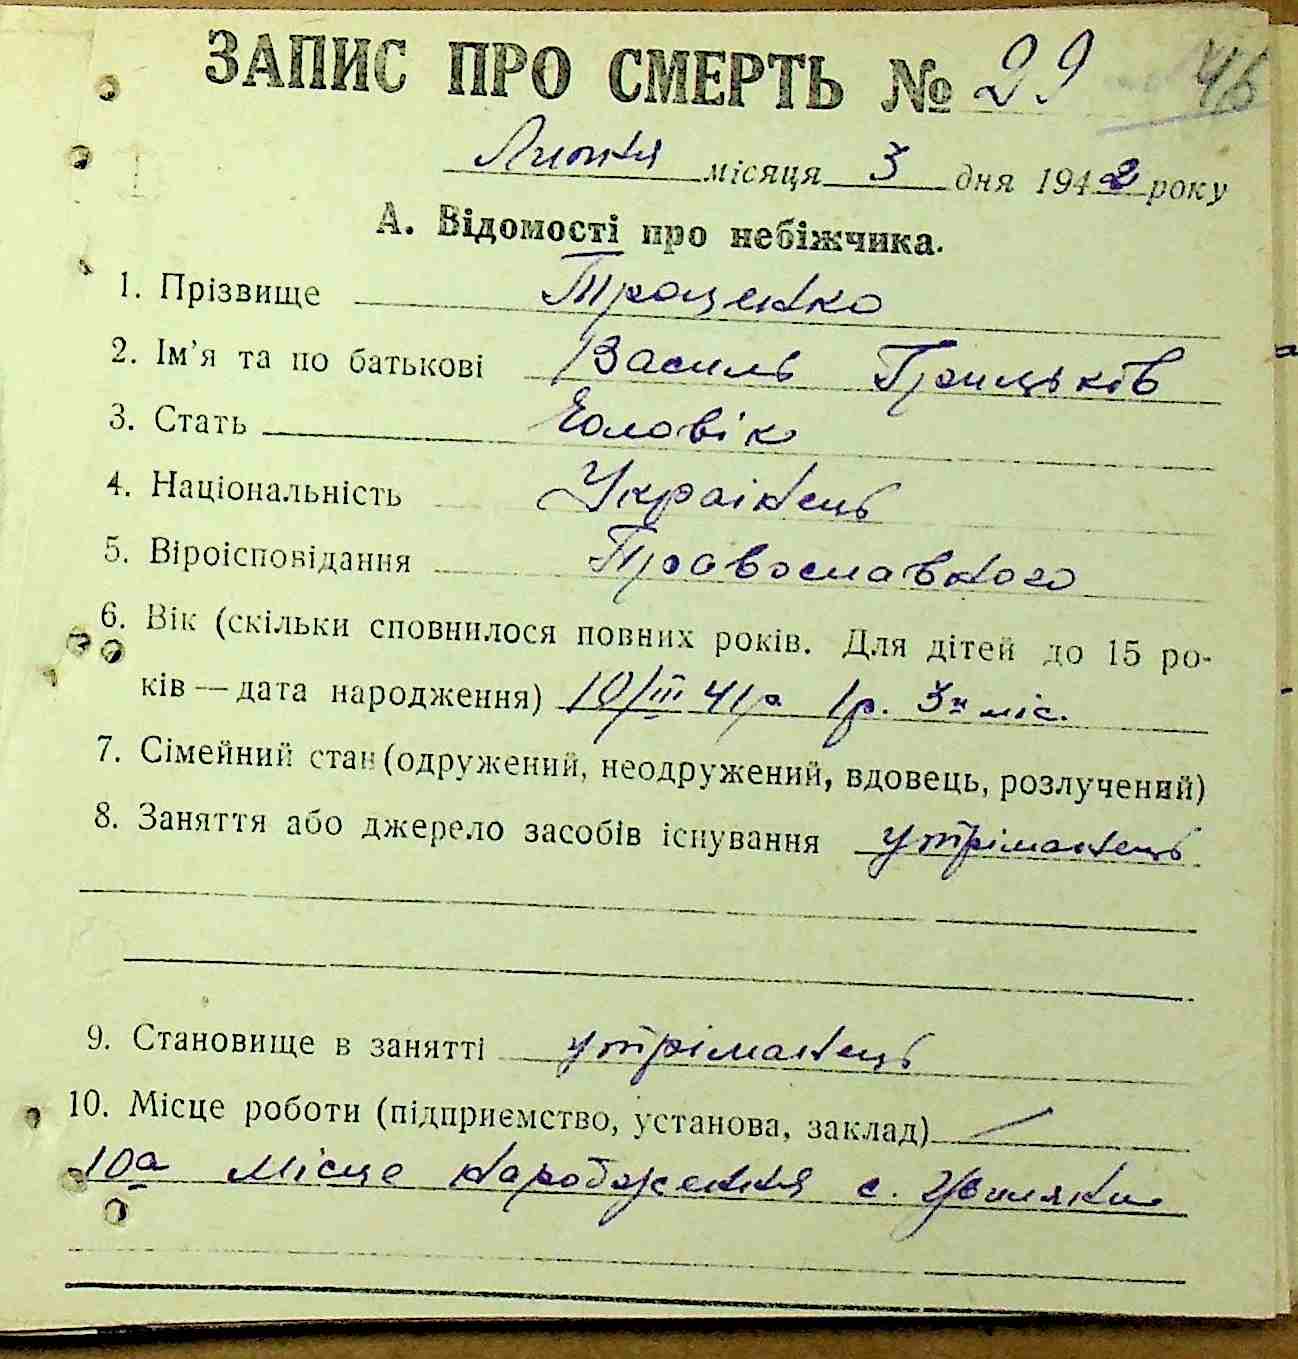 ЗАПИС ПРО СМЕРТЬ № 29 46
Липня місяця 3 дня 1942 року
А. Відомості про небіжчика.
1. Прізвище Троценко
2. Ім'я та по батькові Василь Грицьків
3. Стать Чоловік
4. Національність Украінець
5. Віроісповідання Православного
6. Вік (скільки сповнилося повних років. Для дітей до 15 ро-
ків — дата народження) 10/III 41р 1р. 3и міс.
7. Сімейний стан (одружений, неодружений, вдовець, розлучений)
8. Заняття або джерело засобів існування утріманець
9. Становище в занятті утріманець
10. Місце роботи (підприємство, установа, заклад) —
10а Місце народження с.